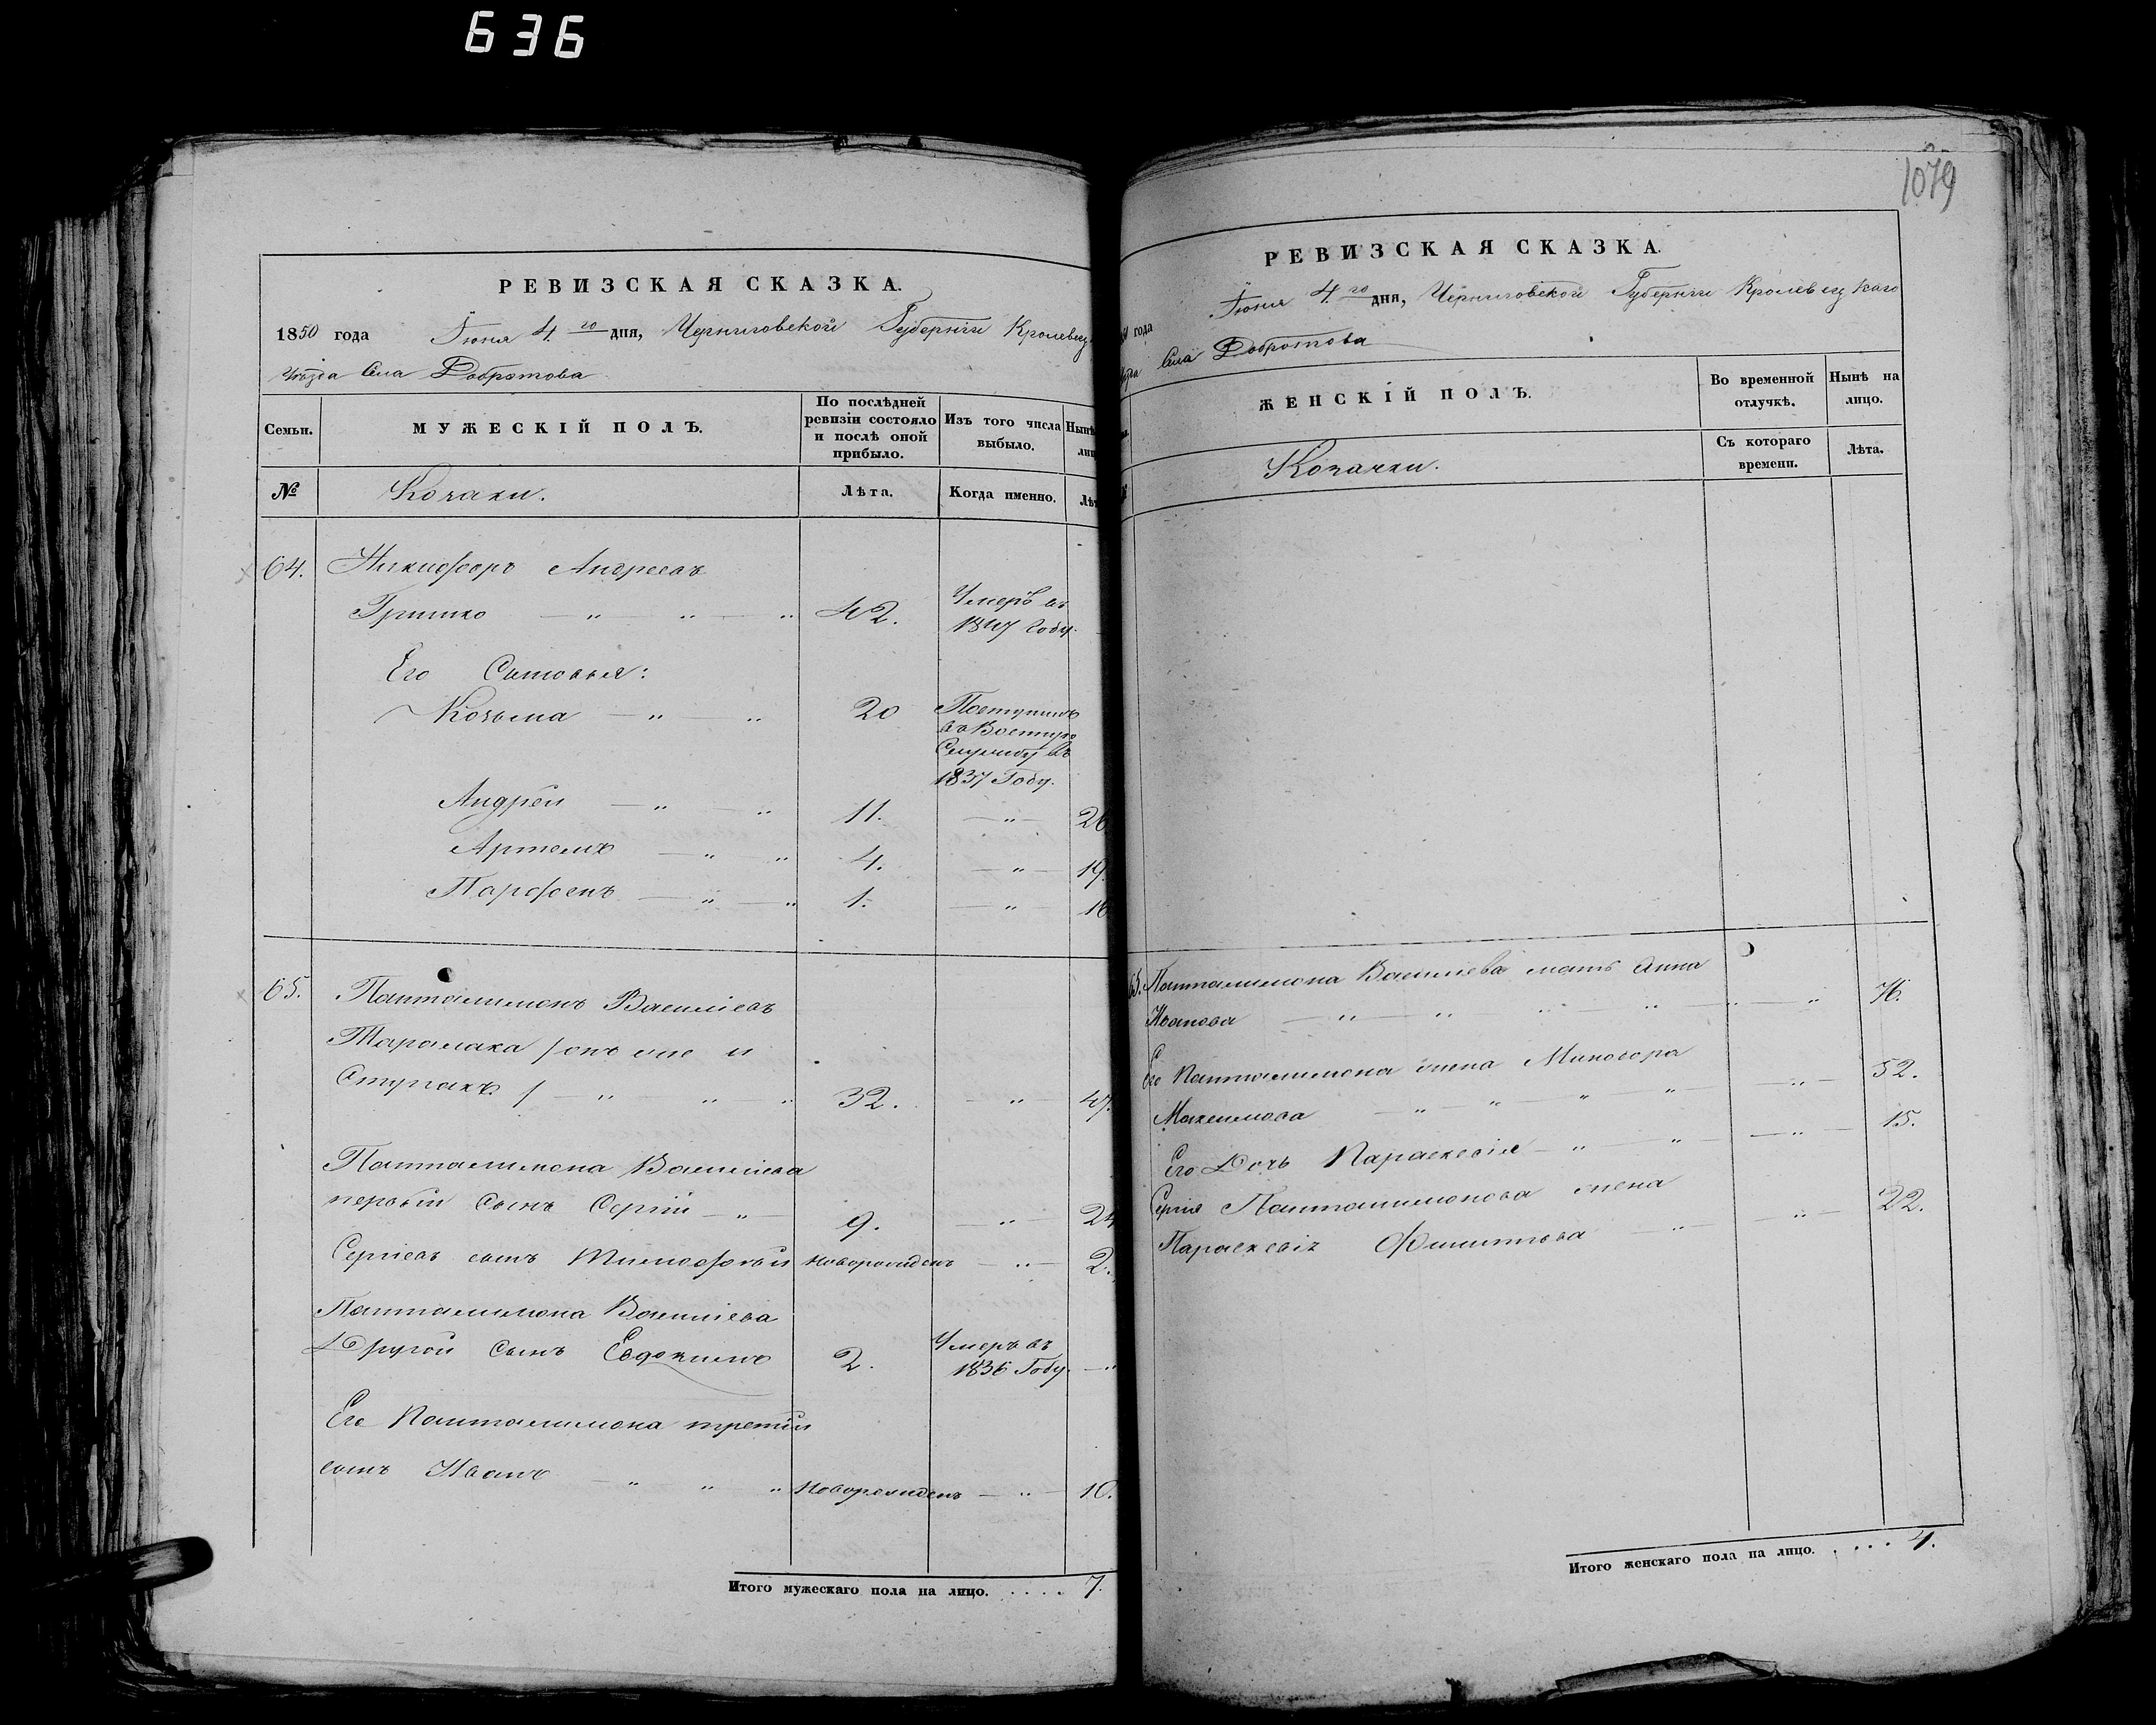 636
РЕВИЗСКАЯ СКАЗКА.
1850 года Іюня 4го дня, Черниговской Губерніи Кролевец
Уѣзда Села Добротова
Семьи.
МУЖЕСКІЙ ПОЛЪ.
По послѣдней ревизіи состояло и послѣ оной прибыло.
Изъ того числа выбыло.
Нынѣ
лиц
№
Козаки.
Лѣта.
Когда именно.
Лѣт
64. Никифоръ Андреевъ
Гришко — " — " — " 42. Умеръ въ
1847 Году.
Его Сыновья:
Козьма — " — " 20 Поступилъ
въ Военную
Службу въ
1837 Году.
Андрей — " — " 11. — " — 26
Артемъ — " — " 4. — " — 19.
Парфенъ — " — " 1. — " — 16
65. Панталимонъ Василіевъ
/ онъ же и
/ — " — " — " 32. — " — 47.
Панталимона Василіева
первый Сынъ Сергій — " — 9. — " — 24
Сергіевъ сынъ Тимофѣй новорожденъ — " — 2.
Панталимона Василіева
Другой Сынъ Евдокимъ 2. Умеръ въ
1836 Году. — "
Его Панталимона третій
сынъ Иванъ — " — " — " Новорожденъ — " — 10.
Итого мужескаго пола на лицо. . . . . 7.
1079
РЕВИЗСКАЯ СКАЗКА.
года Іюня 4го дня, Черниговской Губерніи Кролевецкаго
Села Добротова
ЖЕНСКІЙ ПОЛЪ.
Во временной отлучкѣ.
Нынѣ на лицо.
Козачки.
Съ котораго времени.
Лѣта.
65. Панталимона Василіева мать Анна
Иванова — " — " — " — " — " — " 76.
Его Панталимона жена Минодора
Максимова — " — " — " — " — " — 52.
Его Дочь Параскевія — " — " — " — 15.
Сергія Панталимонова жена
Параскевія Филиппова — " — " — 22.
Итого женскаго пола на лицо. . . . . 4.